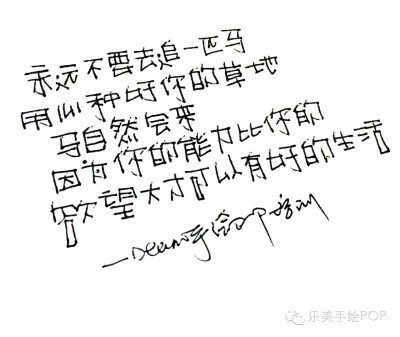 永远不要去追一匹马
用心种好你的草地
马自然会来
因为你的能力比你的
欲望大才可以有好的生活
—Dean手绘POP培训
乐美手绘POP